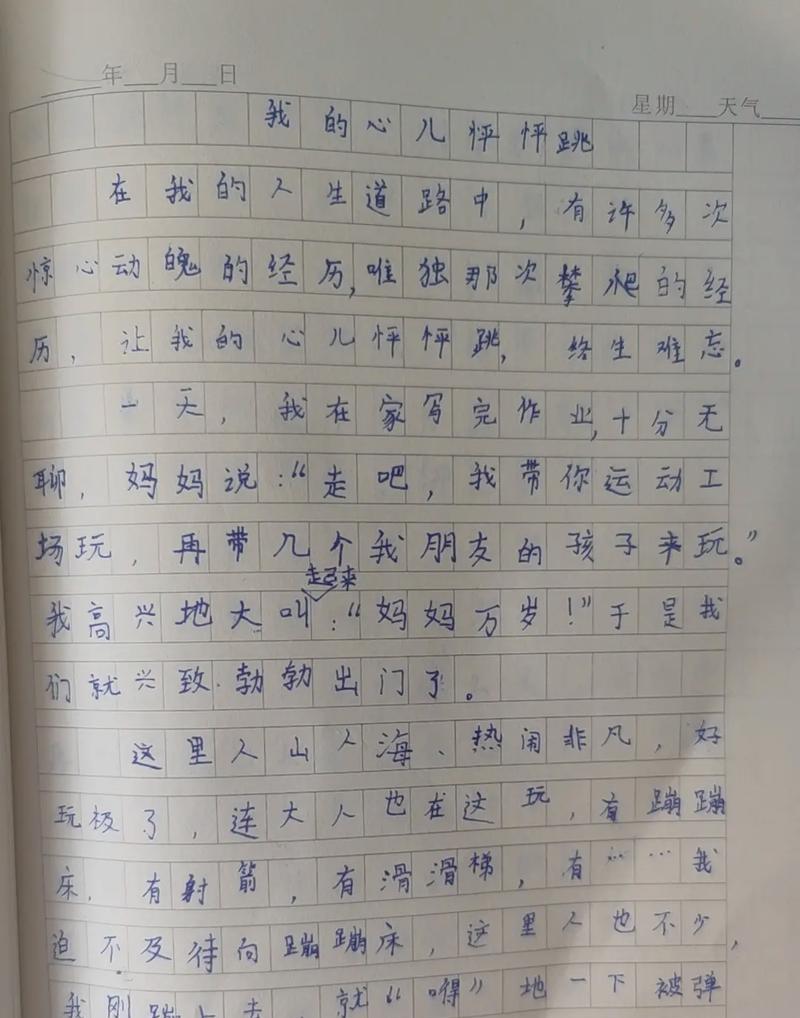 年 月 日
星期 天气
我的心儿怦怦跳
在我的人生道路中，有许多次
惊心动魄的经历，唯独那次攀爬的经
历，让我的心儿怦怦跳，终生难忘。
一天，我在家写完作业，十分无
聊，妈妈说：“走吧，我带你运动工
场玩，再带几个我朋友的孩子来玩。”
起来
我高兴地大叫：“妈妈万岁！”于是我
们就兴致勃勃出门了。
这里人山人海、热闹非凡，好
玩极了，连大人也在这玩，有蹦蹦
床，有射箭，有滑滑梯，有……我
迫不及待向蹦蹦床，这里人也不少，
我刚蹦上去，就“嘚”地一下被弹